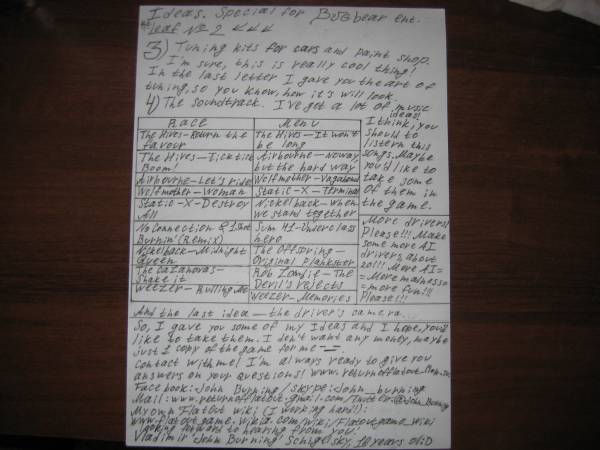 Ideas. Special for Bugbear ent.
leaf № 2 <<<
3) Tuning kits for cars and paint shop.
I'm sure, this is really cool thing!
In the last letter I gave you the art of
tuning, so you know, how it's will look.
4) The soundtrack. I've got a lot of music
ideas!
Race
The Hives-Return the
favour
The Hives-Tick tick
Boom!
Airbourne-Let's ride
Wolfmother-Woman
Static-X-Destroy
All
No Connection &
Burnin' (Remix)
Nickelback-Midnight
Queen
The Cazanovas-
Shake it
Weezer-Rulling Me
Menu
The Hives-It won't
be long
Airbourne-noway
but the hard way
Wolfmother-Vagabond
Static-X-Terminal
Nickelback-When
we stand together
Sum 41-Underclass
hero
The Offspring-
Original Prankster
Rob Zombie-The
Devil's rejects
Weezer-Memories
I think, you
should to
listern this
songs. Maybe
you'd like to
take some
of them in
the game.
More drivers!
Please!!! Make
some more AI
drivers, about
20!!! More AI=
=More madness=
=more fun!!!
Please!!!
And the last idea-the driver's camera...
So, I gave you some of my Ideas and I hope, you'll
like to take them. I don't want any money, maybe
just 1 copy of the game for me -_-
Contact with me! I'm always ready to give you
answers on your questions! www.returnofflatout.
Facebook: John Burning/skype: john_burning
Mail: www.returnofflatout.gmail.com/Twitter: @John_Burning
My own FlatOut wiki (I working hard!!):
www.flatout game.wikia.com/wiki/Flatout game_wiki
looking forward to hearing from you!
Vladimir "John Burning" Schigelsky, 16 years old :D